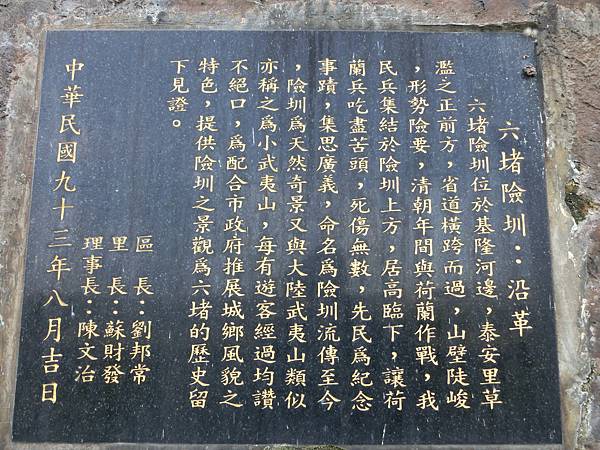 六堵險圳：沿革
六堵險圳位於基隆河邊，泰安里草
濫之正前方，省道橫跨而過，山壁陡峻
，形勢險要，清朝年間與荷蘭作戰，我
民兵集結於險圳上方，居高臨下，讓荷
蘭兵吃盡苦頭，死傷無數，先民為紀念
事蹟，集思廣義，命名為險圳流傳至今
，險圳為天然奇景又與大陸武夷山類似
亦稱之為小武夷山，每有遊客經過均讚
不絕口，為配合市政府推展城鄉風貌之
特色，提供險圳之景觀為六堵的歷史留
下見證。
區長：劉邦常
里長：蘇財發
理事長：陳文治
中華民國九十三年八月吉日